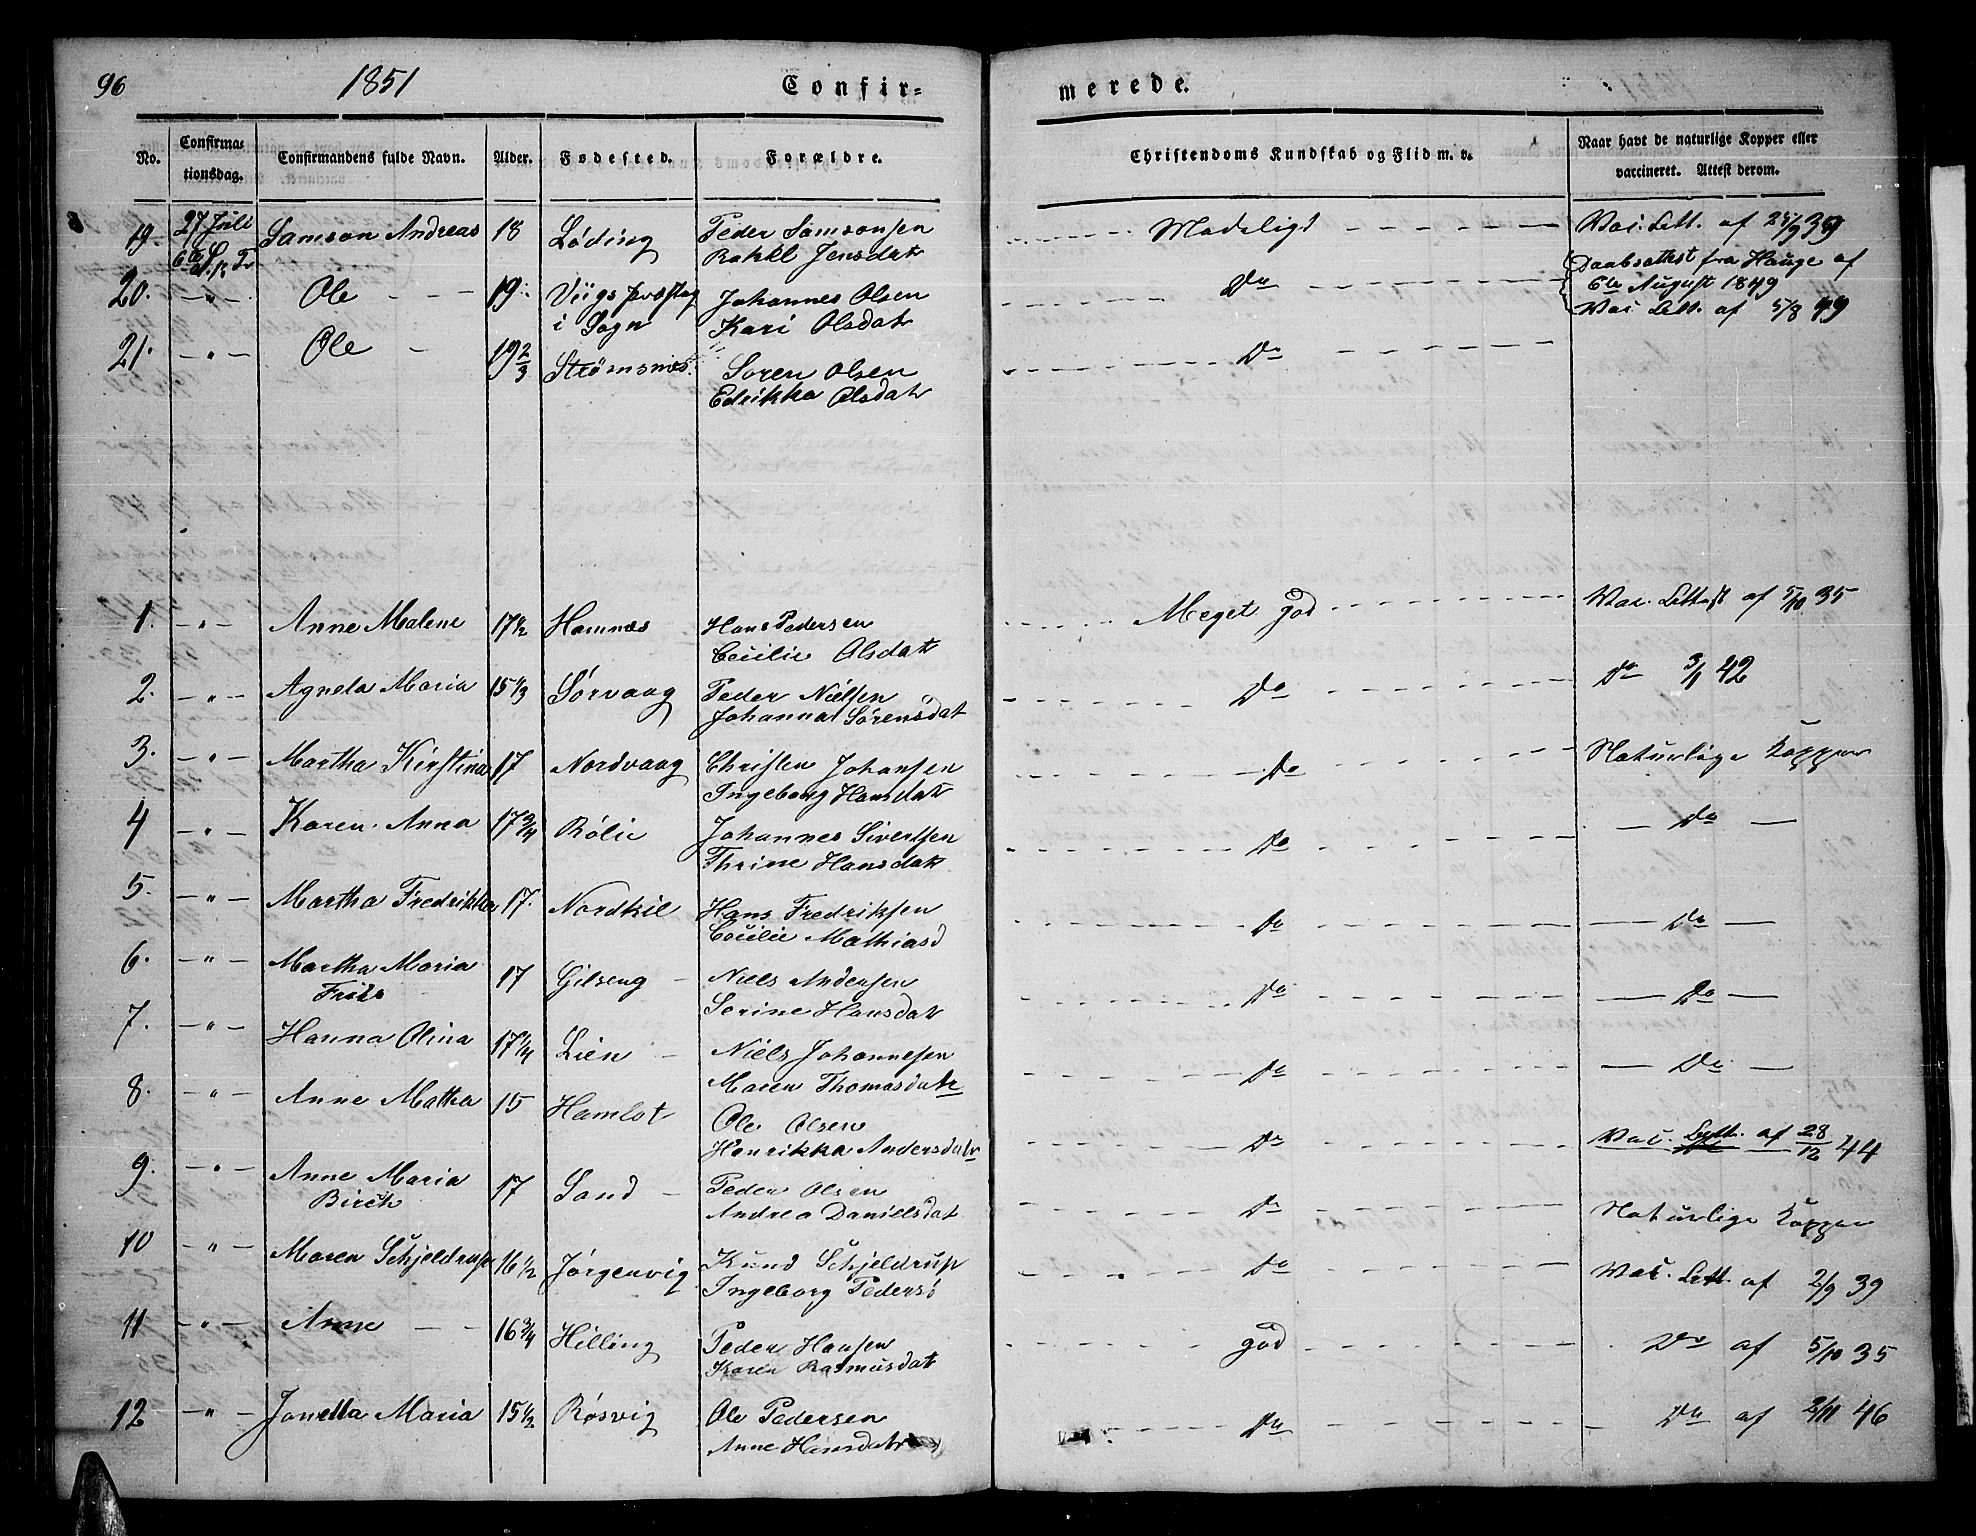 96 1851 Confir- merede.
No. Confirma- tionsdag. Confirmandens fulde Navn. Alder. Fødested. Forældre. Christendoms Kundskab og Flid m. v. Naar havt de naturlige Kopper eller vaccineret. Attest derom.
19. 27 Juli Samson Andreas 18 Løding Peder Samsonsen Madeligt Vac. Att. af 25/9 39
6te S. p. Tr Jensdat
20. - " - Ole - - - 19 præstag Johannes Olsen Do Daabsattest fra Hauge af
i Sogn Kari Olsdatr 6te August 1849
Vac Att. af 5/8 49
21. - " - Ole - 19 2/3 Strømsnes Soren Olsen Do
Edrikka Olsdatr
1. - " - Anne Malene 17 1/2 Hamnes Hans Pedersen Meget god Vac. Attest af 5/10 35
Cecilie Olsdatr
2. - " - Agneta Maria 15 1/3 Sørvaag Peder Nielsen Do Do 3/1 42
Johanna Sørensdat
3. - " - Martha Kirstina 17 Nordvaag Christen Johansen Do Naturlige Kopper
Ingeborg Hansdatr
4 - " - Karen Anna 17 3/4 Rølie Johannes Sivertsen Do — Do —
Thrine Hansdatr
5. - " - Martha Fredrikka 17. Nordkil Hans Fredriksen Do — Do —
Cecilie Mathiasd
6. - " - Martha Maria 17 Gilseng - Niels Andersen Do — Do —
Friis Serine Hansdatr
7. - " - Hanna Olina 17 1/4 Lien - Niels Johannesen Do — Do —
Maren Thomasdatr
8. - " - Anne Matha 15 Hamlot Ole Olsen Do Vac. Att. af 28/12 44
Henrikka Andersdatr
9. - " - Anne Maria 17 Sand - Peder Olsen Do Naturlige Kopper
Birch Andrea Danielsdat
10 - " - Maren Schjeldrup 16 1/2 Jørgenvig Knud Schjeldrup Do Vac. Att. af 2/9 39
Ingeborg Pedersd
11 - " - Anne - - 16 3/4 Hilling Peder Hansen god Do af 5/10 35
Karen Rasmusdat
12 - " - Janetta Maria 15 1/2 Røsvig Ole Pedersen Do Do af 2/11 46
Anne Hansdatr